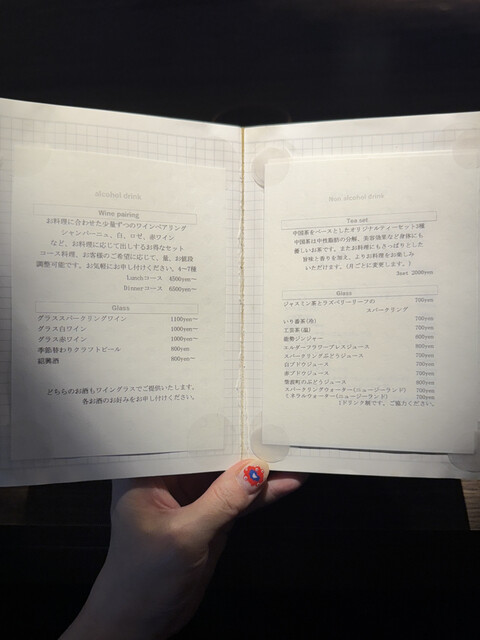 alcohol drink
Wine pairing
お料理に合わせた少量ずつのワインペアリング
シャンパーニュ、白、ロゼ、赤ワイン
など、お料理に応じて出しするお得なセット
コース料理、お客様のご希望に応じて、量、お値段
調整可能です。お気軽にお申し付けください。4〜7種
Lunchコース 4500yen〜
Dinnerコース 6500yen〜
Glass
グラススパークリングワイン 1100yen〜
グラス白ワイン 1000yen〜
グラス赤ワイン 1000yen〜
季節替わりクラフトビール 800yen〜
紹興酒 800yen〜
どちらのお酒もワイングラスでご提供いたします。
各お酒のお好みをお申し付けください。
Non alcohol drink
Tea set
中国茶をベースとしたオリジナルティーセット3種
中国茶は中性脂肪の分解、美容効果など身体にも
優しいお茶です。またお料理にもさっぱりとした
旨味と香りを加え、よりお料理をお楽しみ
いただけます。(月ごとに変更します。)
3set 2000yen
Glass
ジャスミン茶とラズベリーリーフの 700yen
スパークリング
いり番茶(冷) 700yen
工芸茶(温) 700yen
能勢ジンジャー 800yen
エルダーフラワープレスジュース 800yen
スパークリングぶどうジュース 700yen
白ブドウジュース 700yen
赤ブドウジュース 700yen
のぶどうジュース 800yen
スパークリングウォーター(ニュージーランド) 700yen
ミネラルウォーター(ニュージーランド) 700yen
1ドリンク制です。ご協力ください。